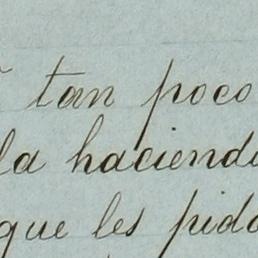 tan poco
la haciend
que les pido